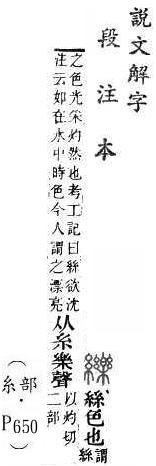 說文解字
段注本
纅 絲色也 謂絲
之色光采灼然也考工記曰絲欲沈
注云如在水中時色今人謂之漂亮
从糸樂聲 以灼切
二部
（糸部・P650）